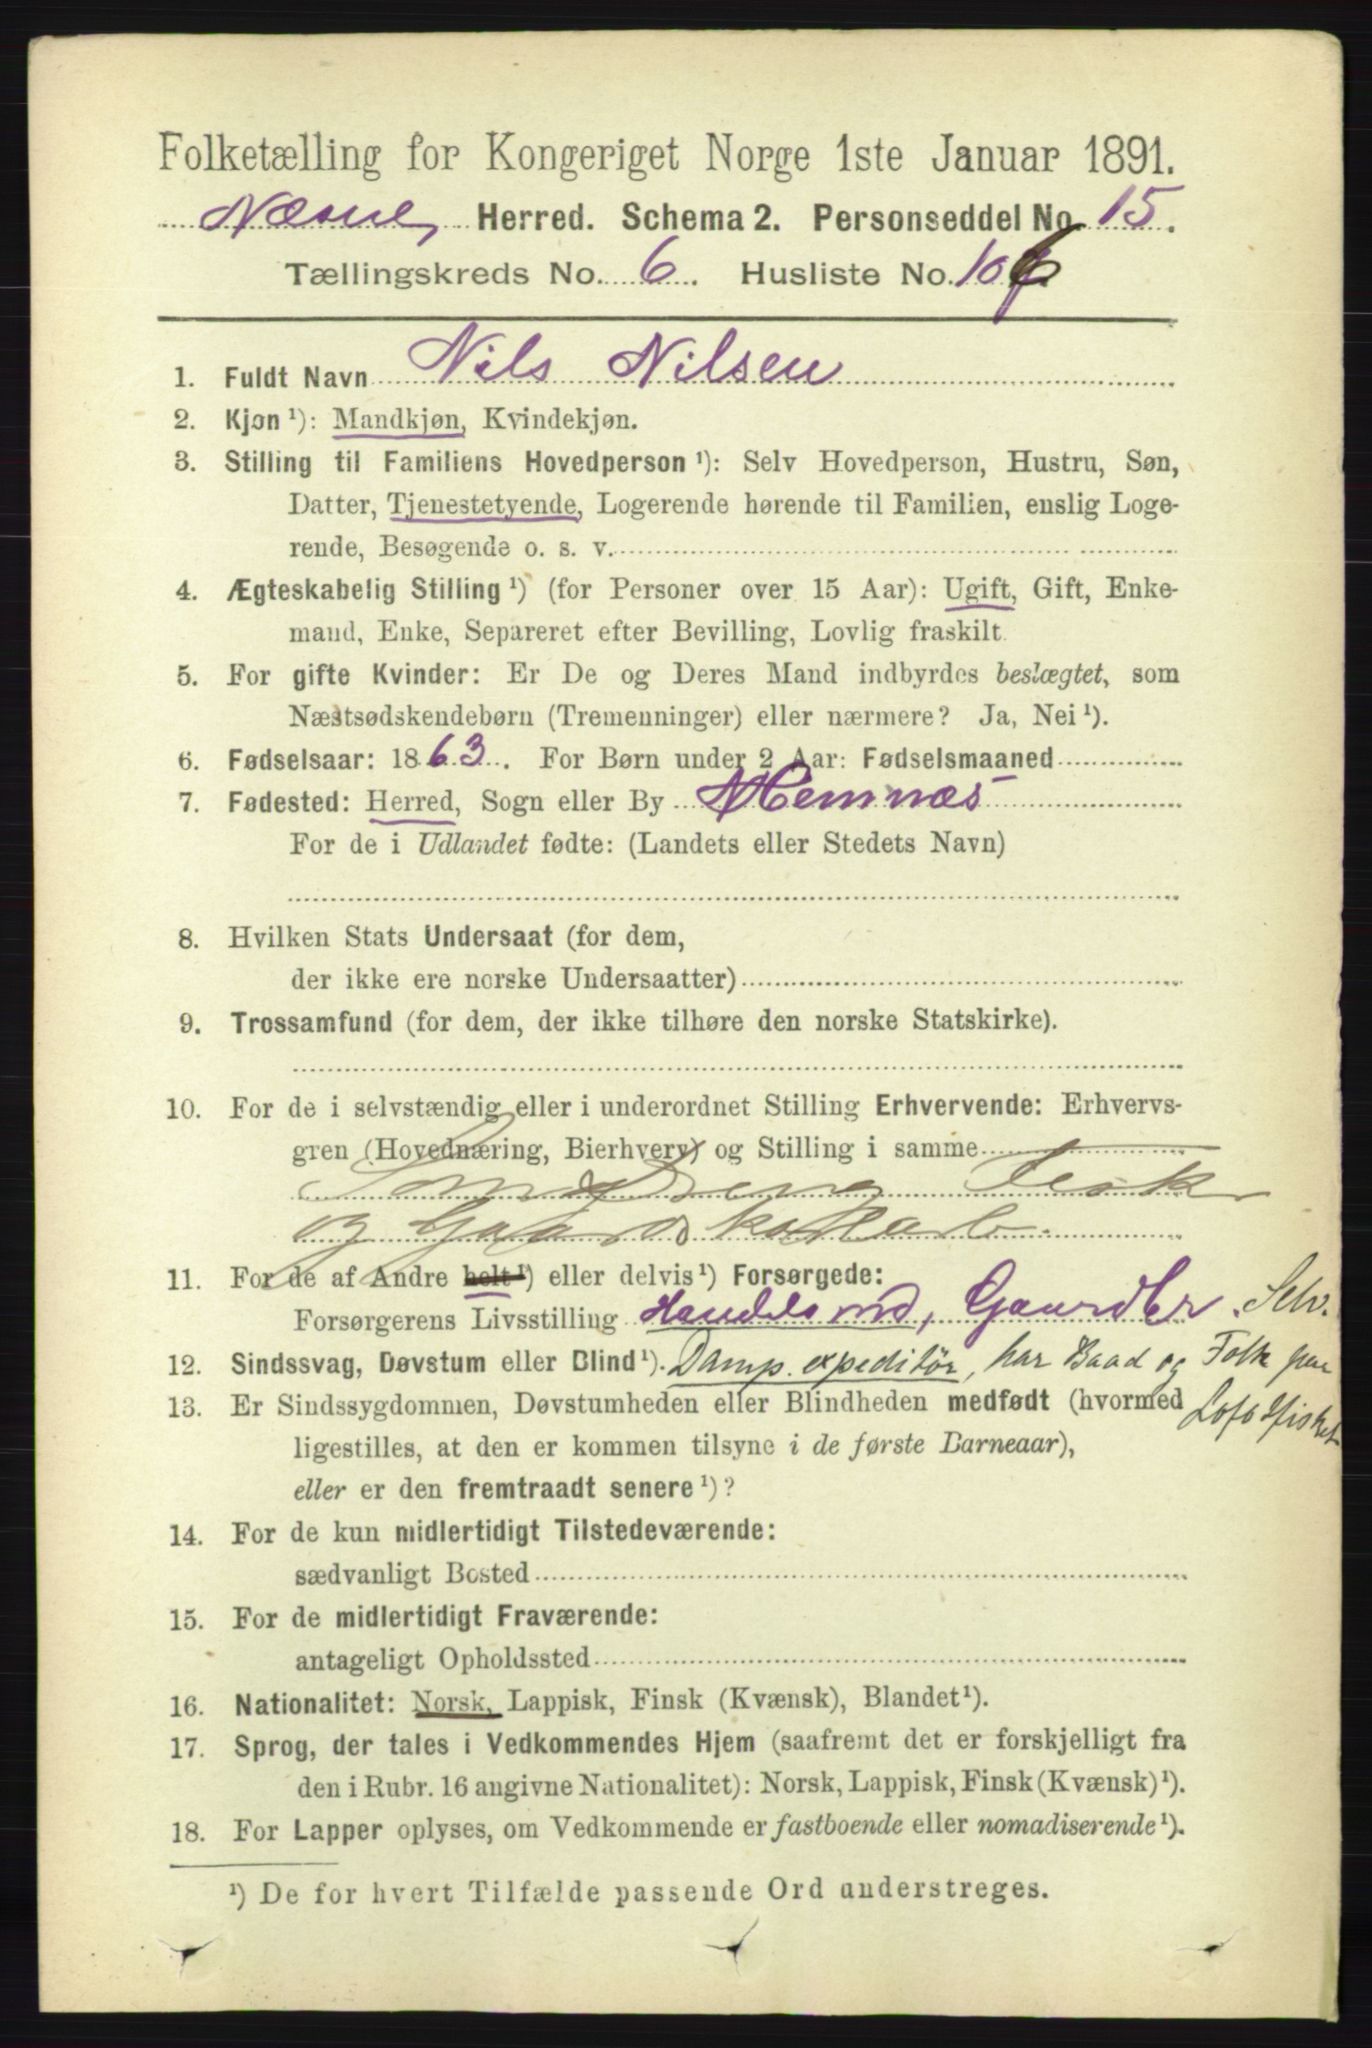 Folketælling for Kongeriget Norge 1ste Januar 1891.
Næsne, Herred. Schema 2. Personseddel No. 15.
Tællingskreds No. 6. Husliste No. 106
1. Fuldt Navn Nils Nilsen
2. Kjøn ¹): Mandkjøn, Kvindekjøn.
3. Stilling til Familiens Hovedperson ¹): Selv Hovedperson, Hustru, Søn,
Datter, Tjenestetyende, Logerende hørende til Familien, enslig Loge-
rende, Besøgende o. s. v.
4. Ægteskabelig Stilling ¹) (for Personer over 15 Aar): Ugift, Gift, Enke-
mand, Enke, Separeret efter Bevilling, Lovlig fraskilt.
5. For gifte Kvinder: Er De og Deres Mand indbyrdes beslægtet, som
Næstsødskendebørn (Tremenninger) eller nærmere? Ja, Nei ¹).
6. Fødselsaar: 1863. For Børn under 2 Aar: Fødselsmaaned
7. Fødested: Herred, Sogn eller By Hemnæs
For de i Udlandet fødte: (Landets eller Stedets Navn)
8. Hvilken Stats Undersaat (for dem,
der ikke ere norske Undersaatter)
9. Trossamfund (for dem, der ikke tilhøre den norske Statskirke).
10. For de i selvstændig eller i underordnet Stilling Erhvervende: Erhvervs-
gren (Hovednæring, Bierhverv) og Stilling i samme
Fisk
og Gaards
11. For de af Andre helt ¹) eller delvis ¹) Forsørgede:
Forsørgerens Livsstilling Handelsmd, Gaardbr. Selv.
12. Sindssvag, Døvstum eller Blind ¹). Damp.expeditör, har Baad og Folk paa
13. Er Sindssygdommen, Døvstumheden eller Blindheden medfødt (hvormed Lofotfisket
ligestilles, at den er kommen tilsyne i de første Barneaar),
eller er den fremtraadt senere ¹)?
14. For de kun midlertidigt Tilstedeværende:
sædvanligt Bosted
15. For de midlertidigt Fraværende:
antageligt Opholdssted
16. Nationalitet: Norsk, Lappisk, Finsk (Kvænsk), Blandet ¹).
17. Sprog, der tales i Vedkommendes Hjem (saafremt det er forskjelligt fra
den i Rubr. 16 angivne Nationalitet): Norsk, Lappisk, Finsk (Kvænsk) ¹).
18. For Lapper oplyses, om Vedkommende er fastboende eller nomadiserende ¹).
¹) De for hvert Tilfælde passende Ord understreges.